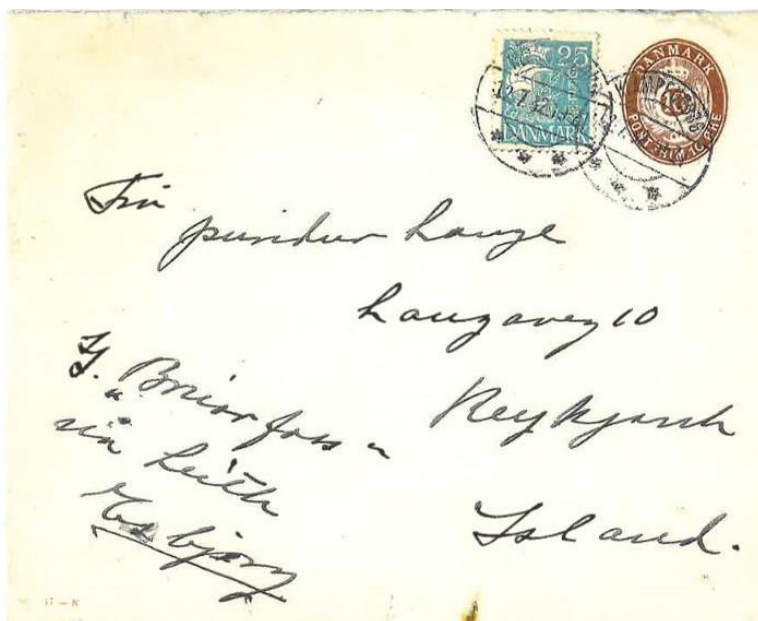 25
DANMARK
DANMARK
POST-FRIM. 10 ØRE
Fru
Lange
Laugaveg 10
Reykjavik
Island.
"Brúarfoss"
via Leith
Esbjerg
17 - N